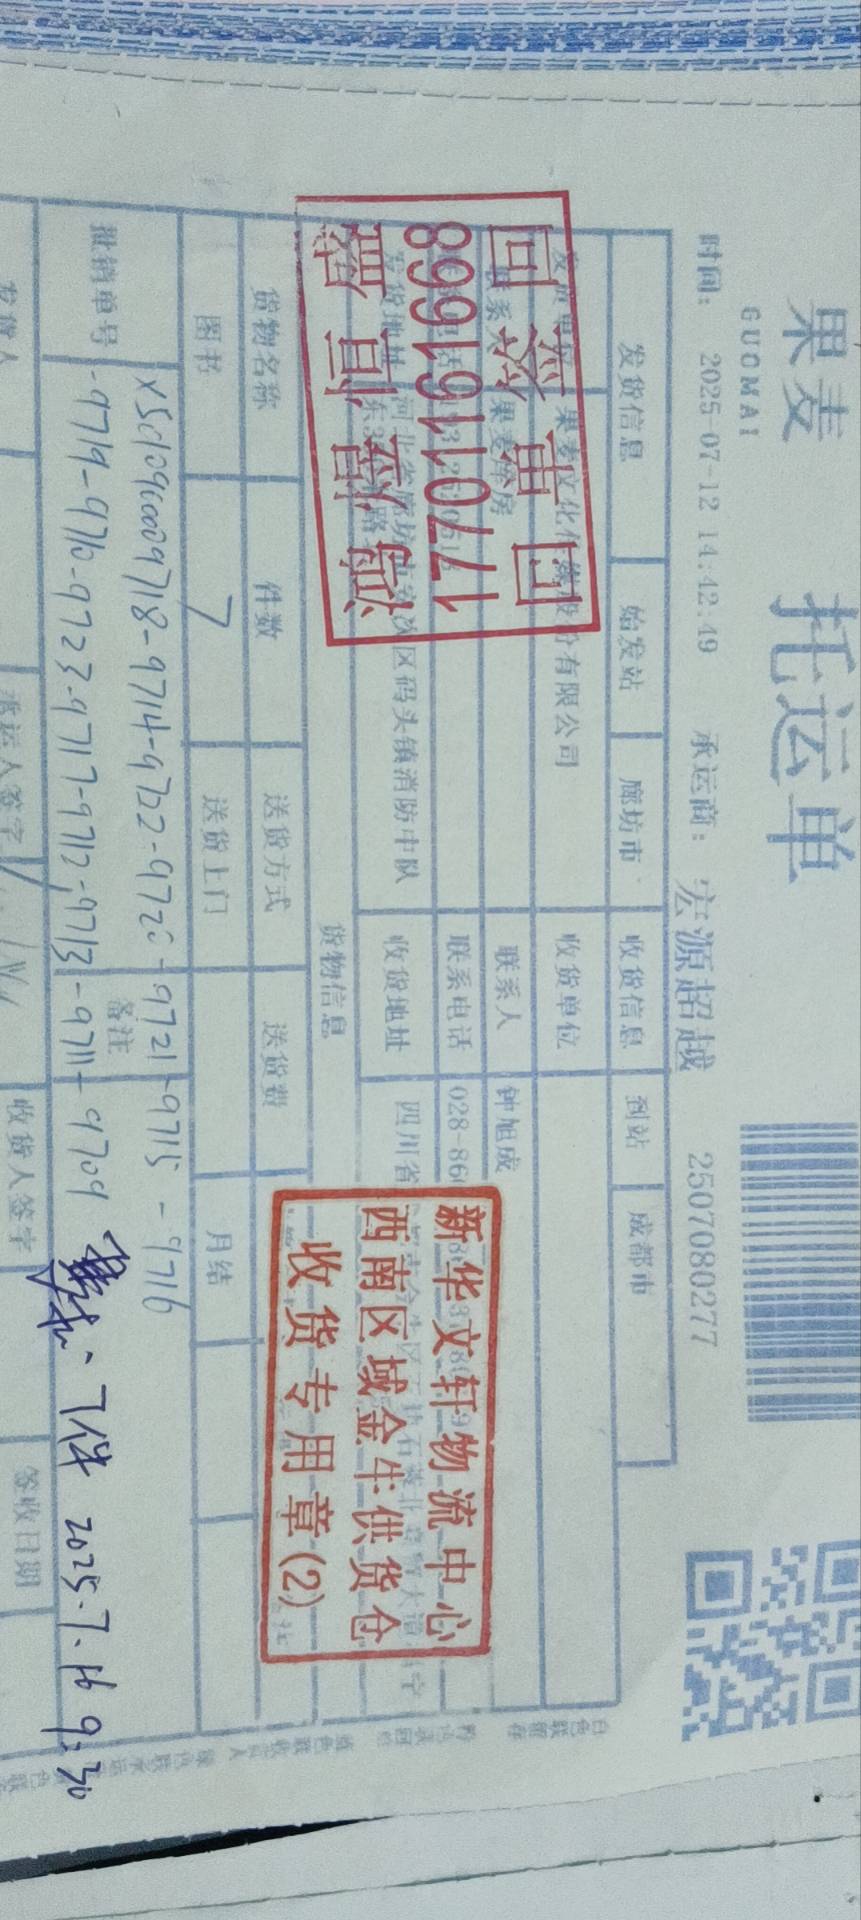 果麦
GUOMAI
托运单
时间: 2025-07-12 14:42:49 承运商: 宏源超越 2507080277
发货信息 始发站 廊坊市 收货信息 到站 成都市
果麦文化传媒股份有限公司 收货单位
联系人 果麦库房 联系人 钟旭成
联系电话 028-86
发货地址 河北省廊坊市安次区码头镇消防中队 收货地址 四川省
回单
17701161668
新华文轩物流中心
西南区域金牛供货仓
收货专用章(2)
货物信息
货物名称 件数 送货方式 送货费
图书 7 送货上门 月结
批销单号 -9718-9714-9722-972 -9721-9715-9716
备注
-9719-9710-9723-9717-9712-9713-9711-9709
7件 2025.7.16 9:30
发货人 承运人签字 收货人签字 签收日期